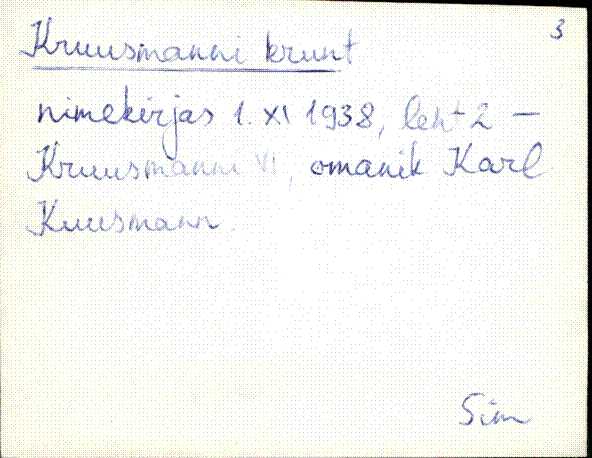 3
Kruusmanni krunt
nimekirjas 1. XI 1938, leht 2 –
Kruusmanni VI, omanik Karl
Kruusmann.
Sim